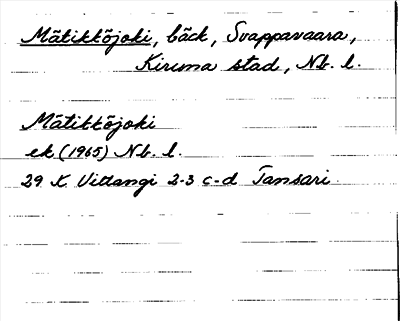 Mätikköjoki, bäck, Svappavaara,
Kiruna stad, Nb. l.
Mätikköjoki
ek (1965) Nb. l.
29 K Vittangi 2-3 c-d Tansari